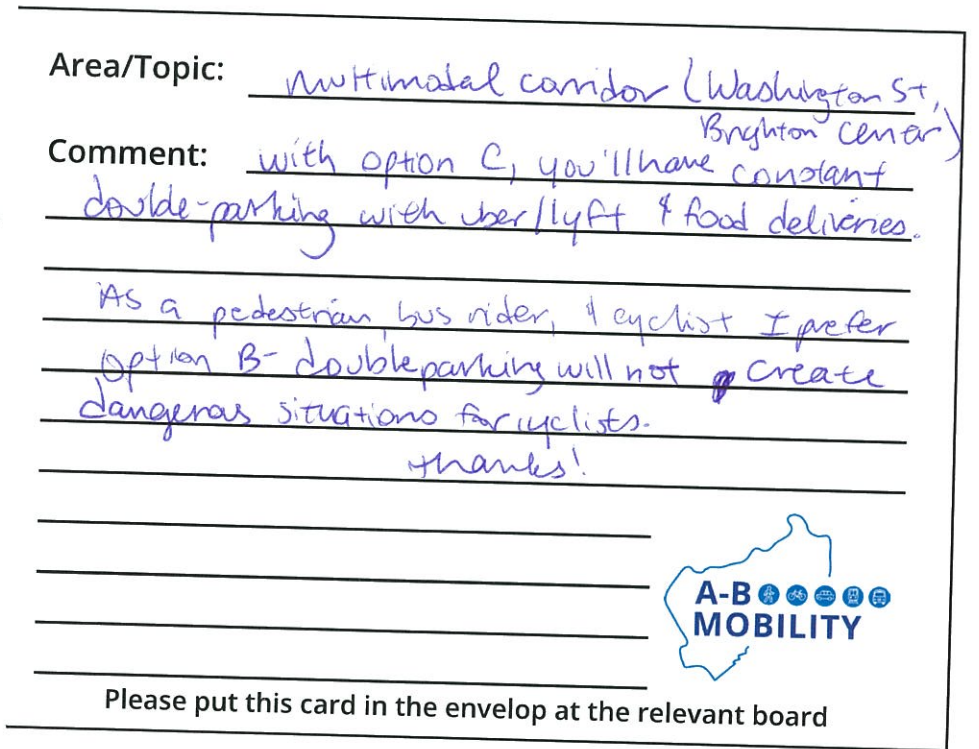 Area/Topic: multimodal corridor (Washington St,
Brighton center)
Comment: with option C, you'll have constant
double-parking with uber/lyft & food deliveries.
As a pedestrian, bus rider, & cyclist I prefer
option B- double parking will not create
dangerous situations for cyclists.
thanks!
A-B
MOBILITY
Please put this card in the envelop at the relevant board